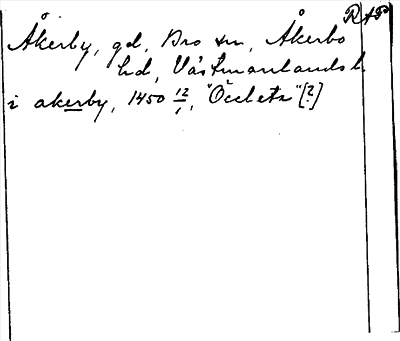 RAP
Åkerby, gd, Bro sn, Åkerbo
hd, Västmanlands l
i akerby, 1450 12/1, "Öcleta" [?]